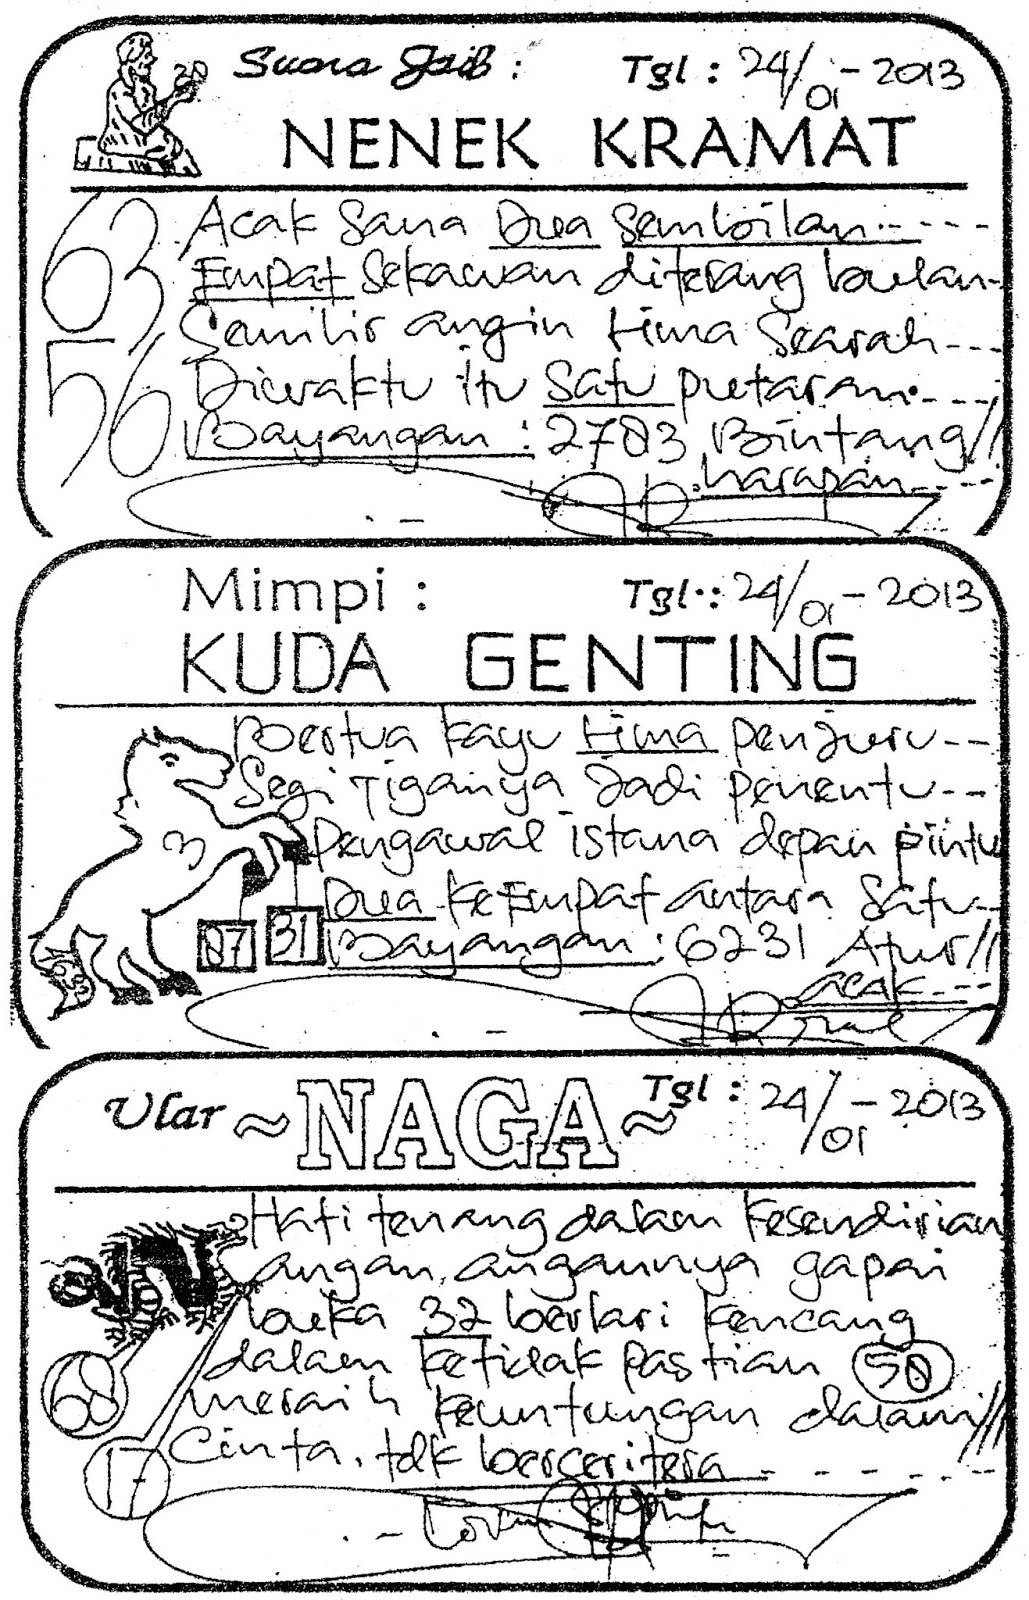 Suara Jaib : Tgl : 24/01 - 2013
NENEK KRAMAT
63 Acak Sana Dua Sembilan.----
Empat Sekawan diterang bulan-
56 Semilir angin Lima Searah---
Diwaktu itu Satu putaran.---
Bayangan : 2703 Bintang//
harapan----
Mimpi : Tgl : 24/01 - 2013
KUDA GENTING
Bertua kayu Lima penjuru--
Segi Tiganya Jadi penentu--
3 Pengawal istana depan pintu
Dua keEmpat antara Satu-
07 31 Bayangan : 6231 Atur//
acak---
Ular ~NAGA~ Tgl : 24/01 - 2013
Hati tenang dalam kesendirian
angan, angannya gapai
buka 32 berlari kencang
68 dalam ketidak pastian 50
meraih keuntungan dalam//
17 Cinta. tdk berceritera - - - - -